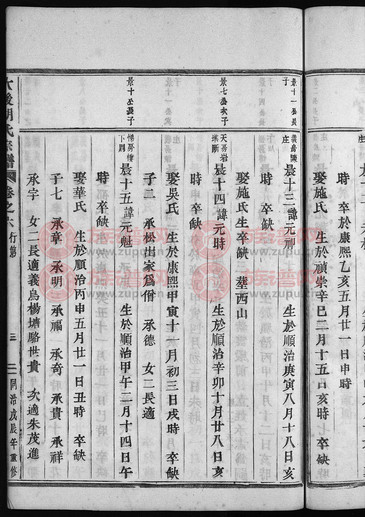 時 卒於康熙乙亥五月廿一日申時
娶施氏 生於順崇辛巳二月十五日亥時 卒缺
景十一公長子
義烏陵庄
晨十三諱元福 生於順治庚寅八月十八日亥
時 卒缺
娶施氏 生卒缺 塟西山
景七公次子
天房岩承斷
晨十四諱元時 生於順治辛卯十月廿八日亥
時 缺
娶吳氏 生於康熙甲寅十一月初三日戌時 卒缺
子二 承松出家爲僧 承德 女二長適
景十公長子
晨十五諱元魁 生於順治甲午二月十四日午
時 卒缺
娶華氏 生於順治丙申五月廿一日丑時 卒缺
子七 承章 承明 承福 承奇 承貴 承祥
承字 女二長適義烏楊塘駱世貴 次適朱茂進
胡氏宗譜 卷之六 行第 三 同治戊辰年重修